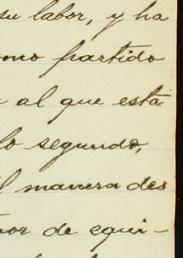 su labor, y ha
omo partido
al que está
lo segundo,
manera des
de equi-